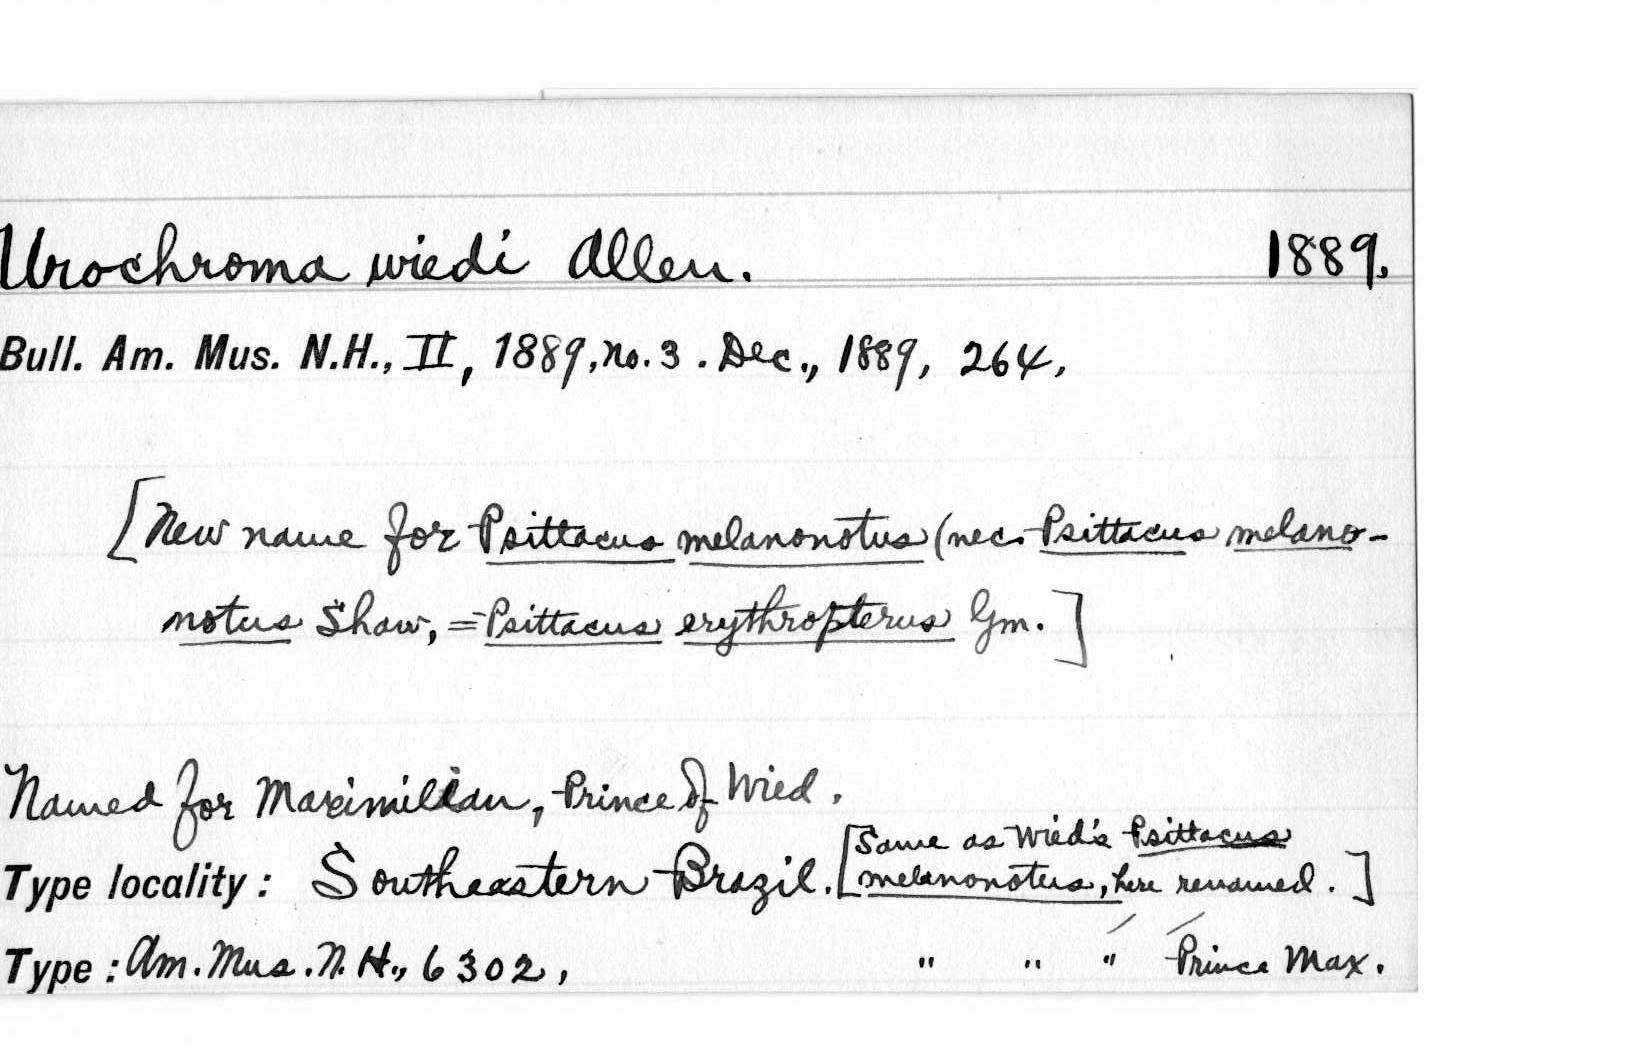 Urochroma wiedi Allen. 1889.
Bull. Am. Mus. N.H., II, 1889, no. 3. Dec., 1889, 264,
[New name for Psittacus melanonotus (nec. Psittacus melano-
notus Shaw, = Psittacus erythropterus Gm.]
Named for Maximilian, Prince of Wied.
[Same as Wied's Psittacus
Type locality: Southeastern Brazil. melanonotus, here renamed.]
Type: Am. Mus. N. H., 6302, " " " Prince Max.